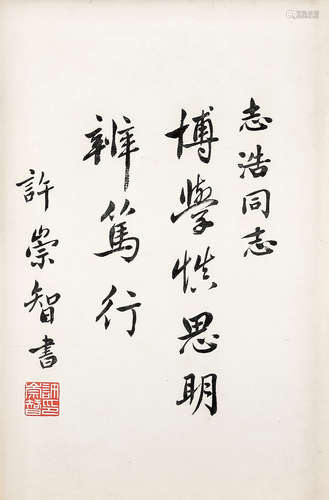 志浩同志
博學慎思明
辨篤行
許崇智書
許崇智印